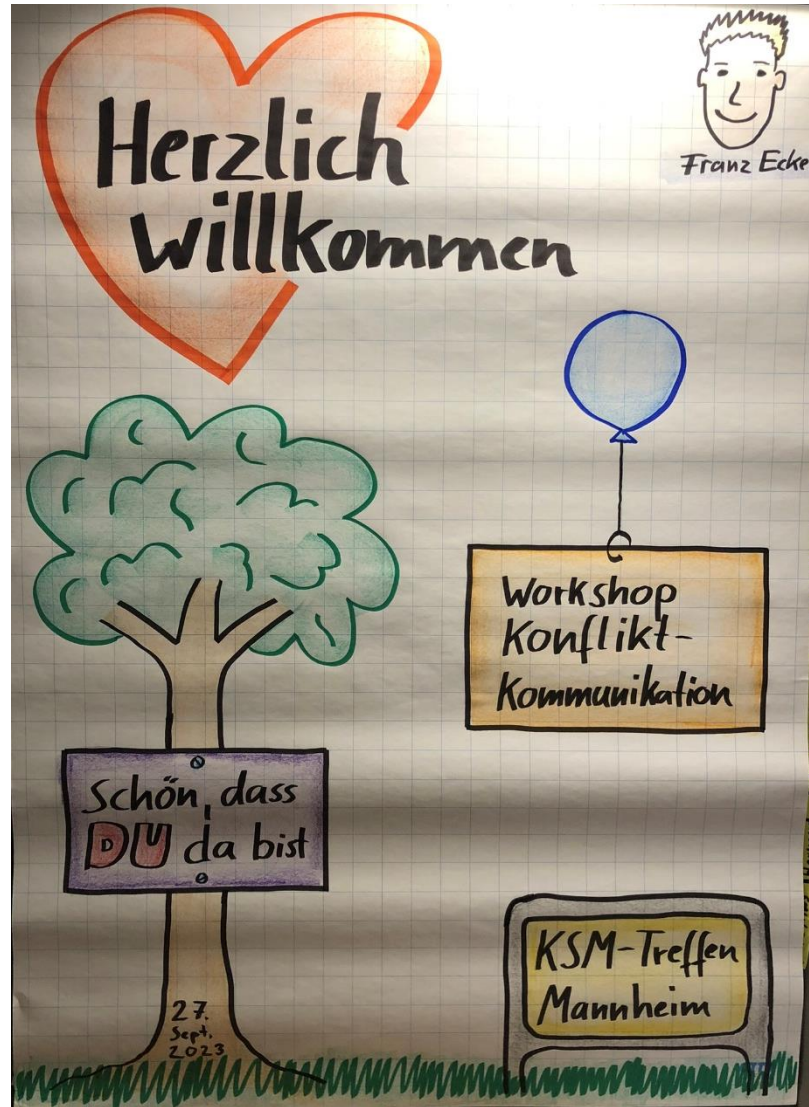 Herzlich
Willkommen
Franz Ecke
Workshop
Konflikt-
Kommunikation
Schön, dass
DU da bist
KSM-Treffen
Mannheim
27.
Sept.
2023